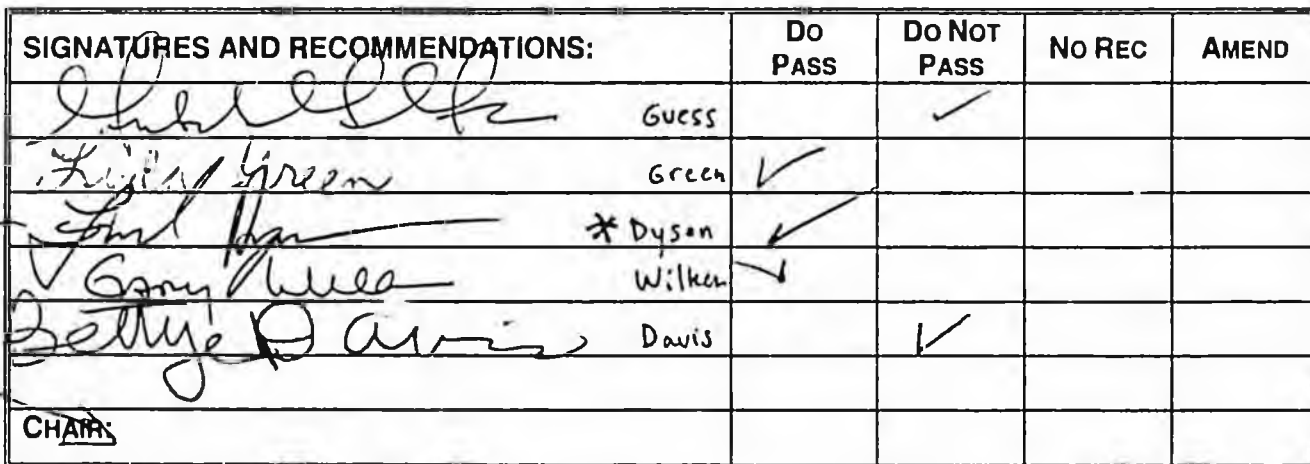 SIGNATURES AND RECOMMENDATIONS: DO PASS DO NOT PASS NO REC AMEND
Guess ✓
Green Green ✓
* Dyson ✓
✓ Gary Wilken Wilken ✓
Bettye Davis Davis ✓
CHAIR: